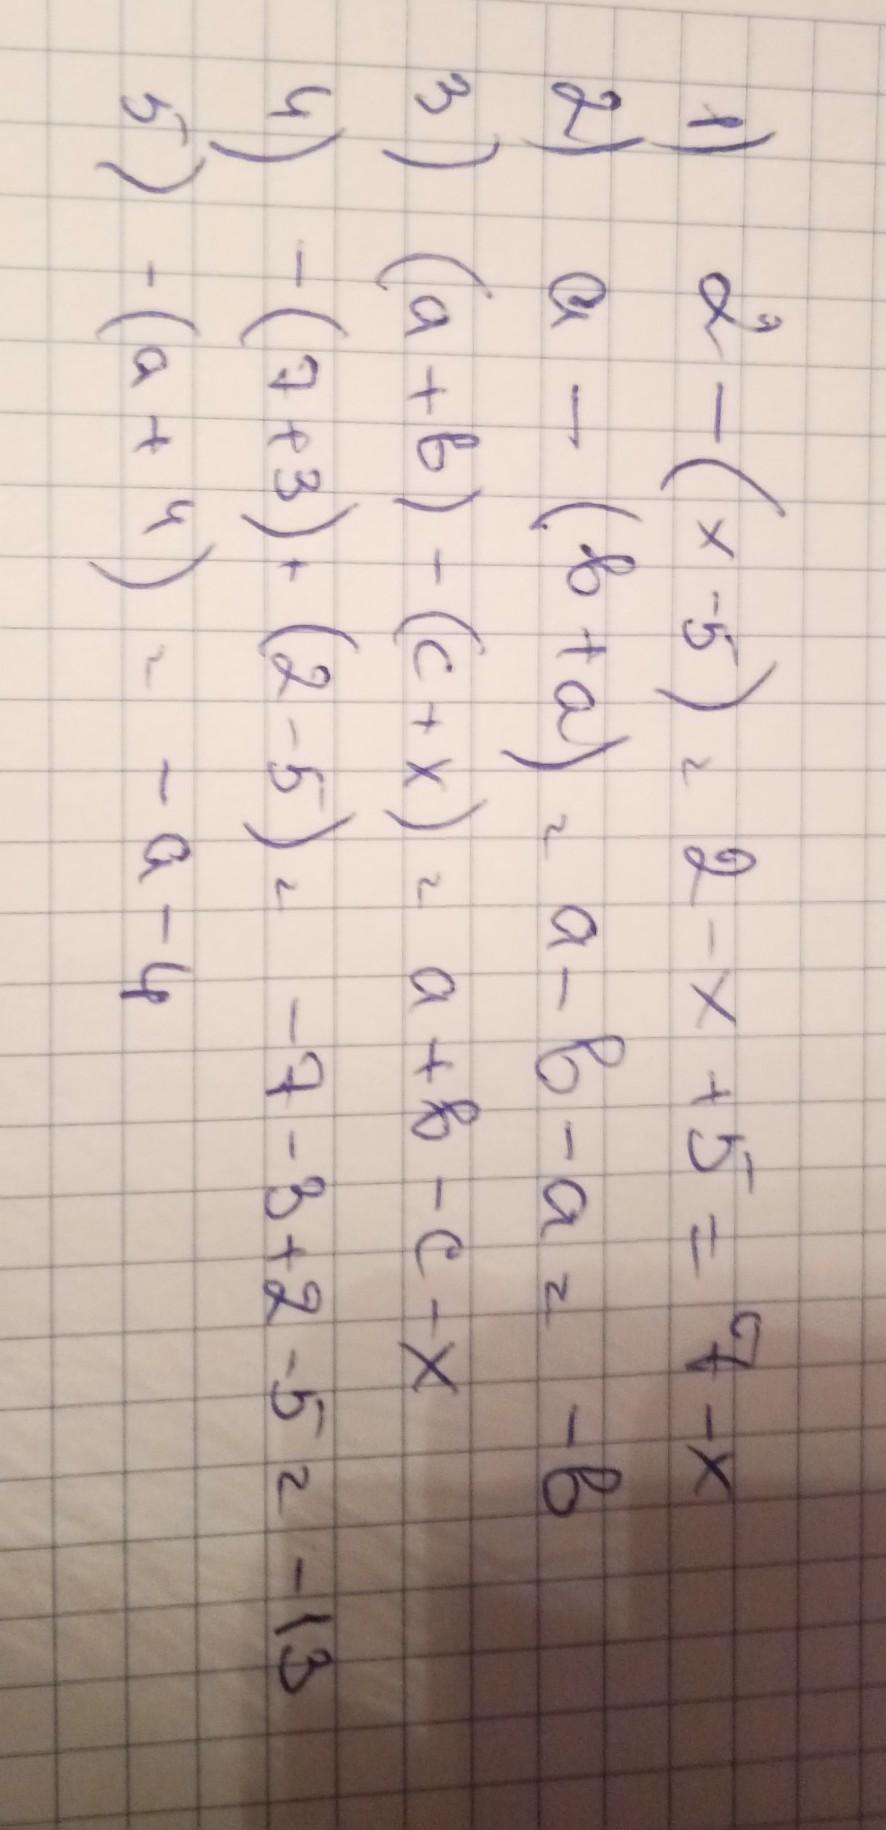 1) 2 - (x - 5) = 2 - x + 5 = 7 - x
2) a - (b + a) = a - b - a = - b
3) (a + b) - (c + x) = a + b - c - x
4) - (7 + 3) + (2 - 5) = - 7 - 3 + 2 - 5 = - 13
5) - (a + 4) = - a - 4